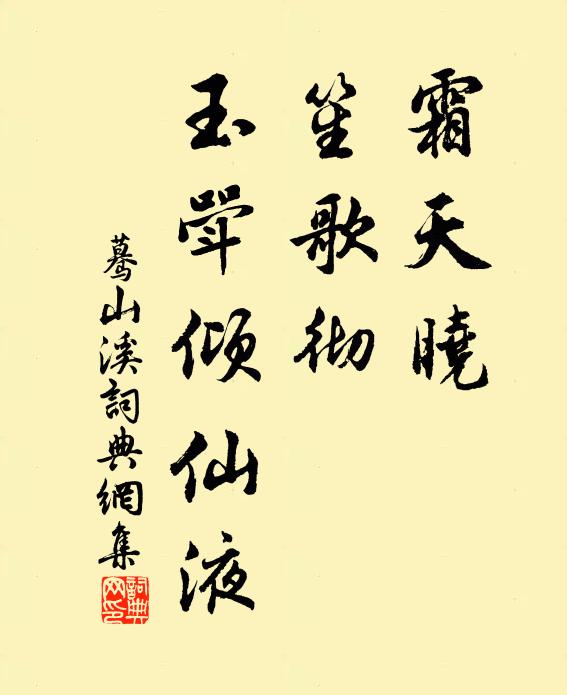 霜天曉
笙歌彻
玉斝傾仙液
蓦山溪詞典網集
詞典网印